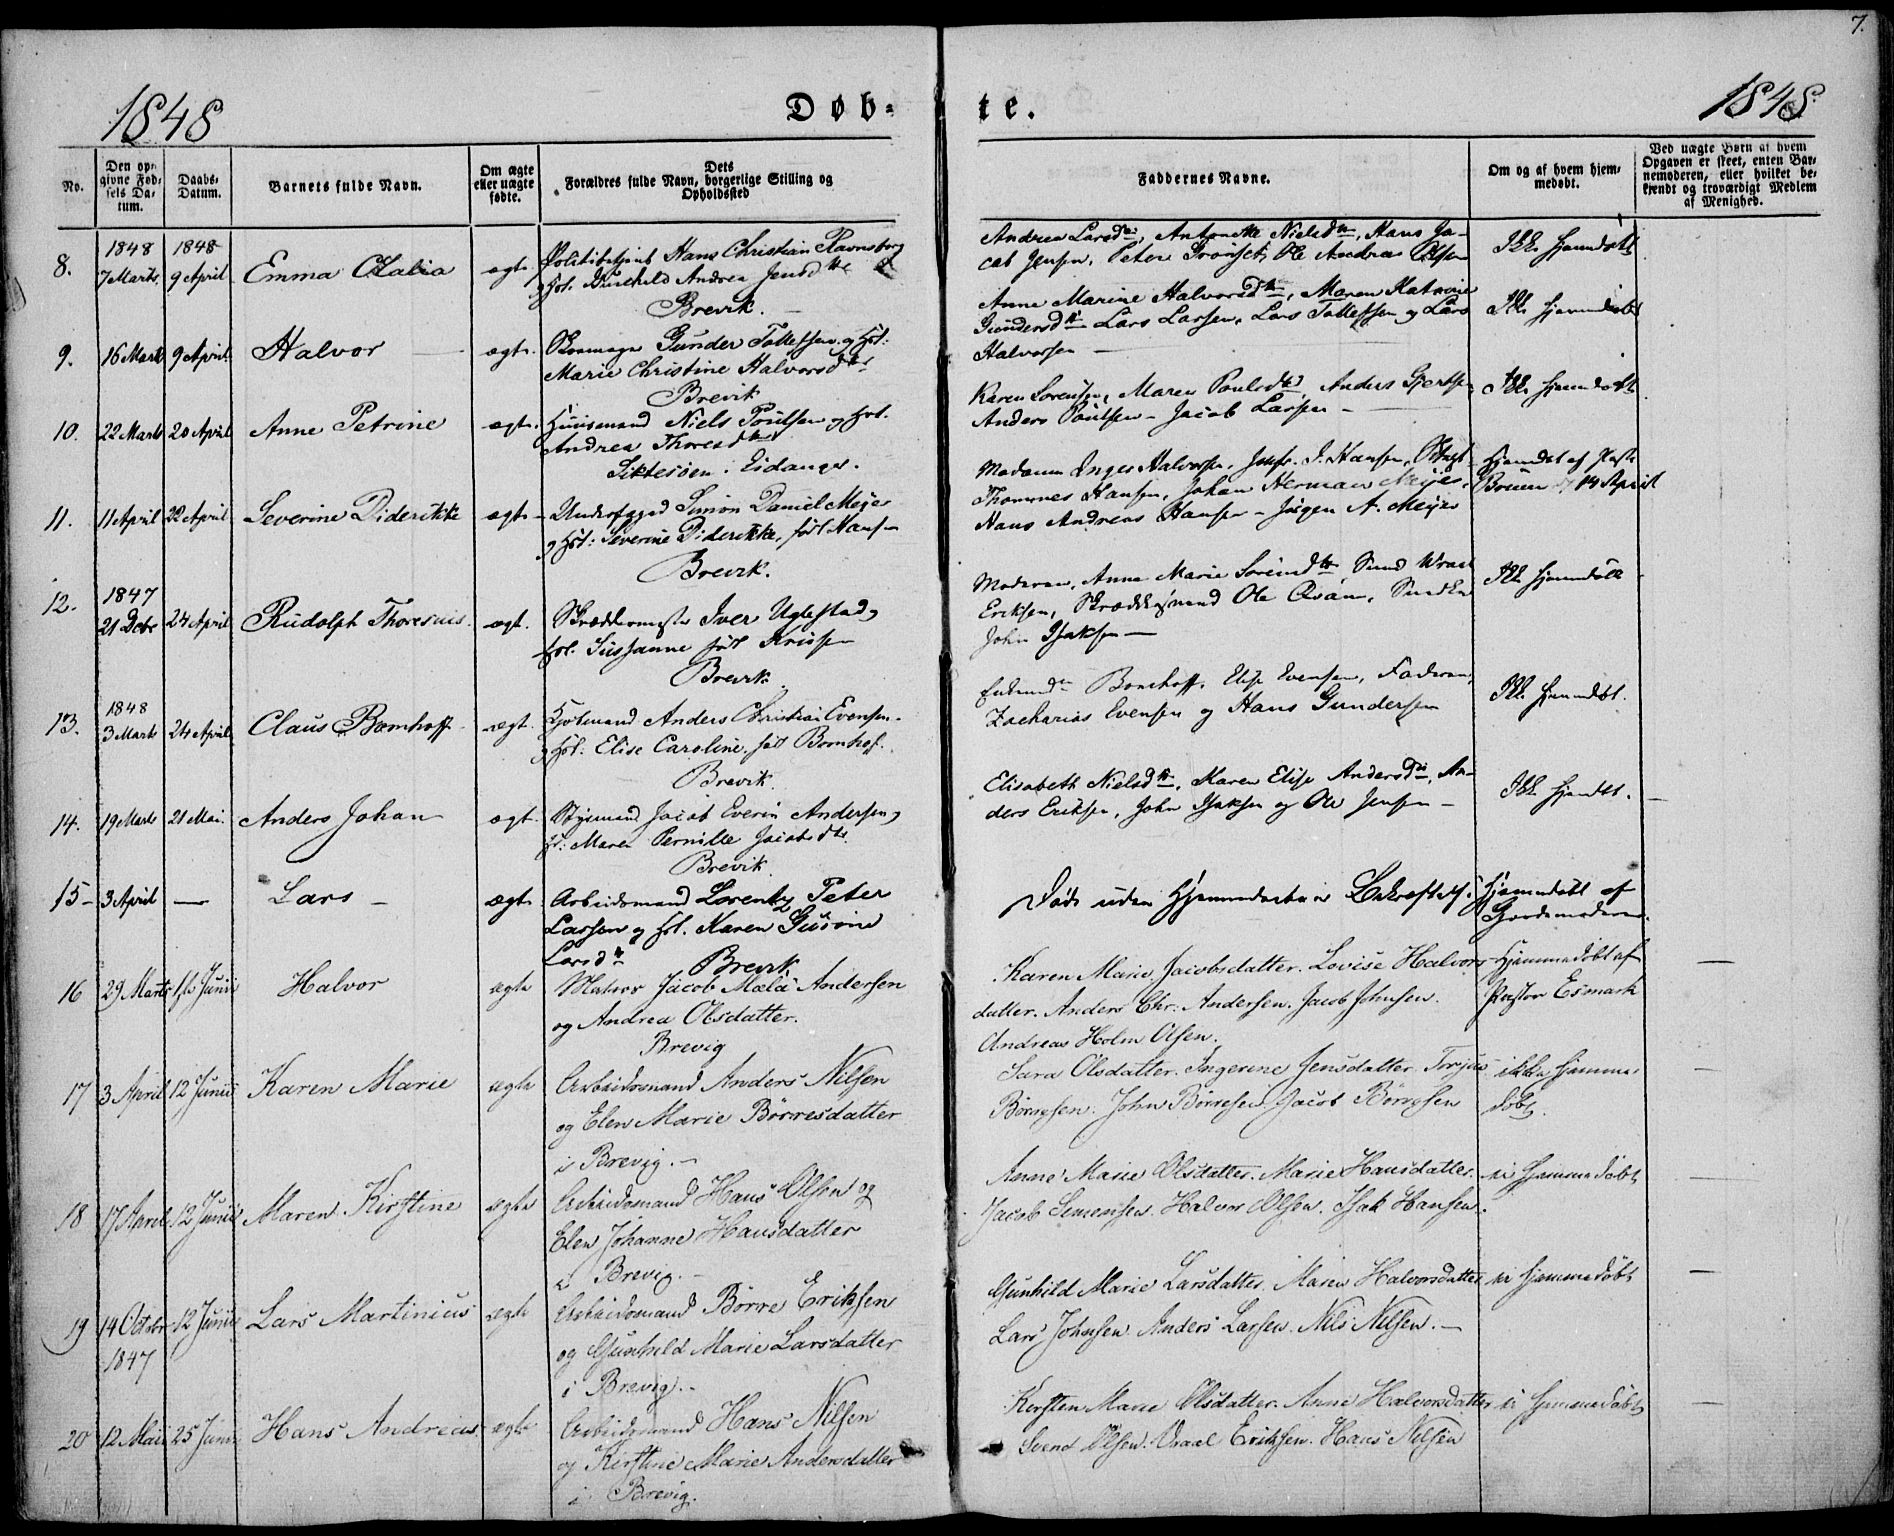 7.
1848 Døb- te. 1848.
No.
Den op-
givne Fød-
sels Da-
tum.
Daabs-
Datum.
Barnets fulde Navn.
Om ægte
eller uægte
fødte.
Dets
Forældres fulde Navn, borgerlige Stilling og
Opholdssted
Faddernes Navne.
Om og af hvem hjem-
medøbt.
Ved uægte Børn af hvem
Opgaven er skeet, enten Bar-
nemoderen, eller hvilket be-
kjendt og troværdigt Medlem
af Menighed.
8.
1848
7 Marts
1848
9 April
Emma
ægte
Hans Christian Ravnsborg
Andrea Jensd
Brevik.
Andrea Larsd, Antonette Nielsd, Hans Ja-
cob Jensen, Peter Ole Andreas Olsen
Ikke hjemdøbt
9.
16 Marts
9 April
Halvor
ægte.
Gunder Tollefsen og Hst:
Marie Christine Halvorsd
Brevik
Anne Marine Halvorsd, Maren Katrine
Gundersd Lars Larsen, Lars Tollefsen og Lars
Halvorsen
Ikke hjemmedøbt
10.
22 Marts
20 April
Anne Petrine
ægte.
Huusmand Niels Poulsen og Hst.
Andrea Thoresd
i Eidanger.
Karen Sørensen, Maren Poulsd Anders Gjertsen
Anders Poulsen - Jacob Larsen -
Ikke hjemdøbt
11.
11 April
22 April
Severine Diderikke
ægte
Simon Daniel Meyer
og Hst: Severine Diderikke, født Hansen
Brevik.
Madame Inger Halvorsen, Jomfr. J. Hansen,
Thommes Hansen, Johan Herman Meyer,
Hans Andreas Hansen - Jørgen A. Meyer
Hjemdøbt af
14 April
12.
1847
21 Debr
24 April
Rudolph Thoresius.
ægt.
Iver Uglestad og
Hst. Susanne født
Brevik
Moderen, Anne Marie Sørensd,
Eriksen, Ole
John Isaksen
Ikke hjemmedøbt
13.
1848
3 Marts
24 April
Claus Bomhoff
ægt.
Anders Christian Evensen
og Hst: Elise Caroline født Bomhof.
Brevik.
Bomhoff, Elise Evensen, Faderen,
Zacharias Evensen og Hans Gundersen
Ikke hjemdøbt.
14.
19 Marts
21 Mai.
Anders Johan
ægt.
Styrmand Jacob Everin Andersen og
H: Maren Pernille Jacobsd
Brevik
Elisabeth Nielsd, Karen Elise Andersd, An-
ders Eriksen, John Isaksen og Ole Jensen -
Ikke hjemdøbt.
15
3 April
—
Lars -
ægte
Arbeidsmand Lorentz Peter
Larsen og Hst. Karen
Larsd Brevik
Døde uden Hjemmedaabens Bekræftelse.
Hjemmedøbt af
Gjordemoderen.
16
29 Marts
Junii
Halvor
ægte
Matros Jacob Andersen
og Andrea Olsdatter.
Brevig
Karen Marie Jacobsdatter. Lovise Halvors-
datter. Anders Chr: Andersen. Jacob Johnsen.
Andreas Holm Olsen.
Hjemmedøbt af
Pastor Esmark
17
3 April
12 Junii
Karen Marie
ægte
Arbeidsmand Anders Nilsen
og Elen Marie Börresdatter
i Brevig.
Sara Olsdatter. Ingerine Jensdatter. Torjus
Börresen. John Börresen. Jacob Börresen
ikke hjemme-
døbt.
18
17 April
12 Junii
Maren Kirstine
ægte
Arbeidsmand Hans Olsen og
Elen Johanne Hansdatter
i Brevig.
Anne Marie Olsdatter. Marie Hansdatter.
Jacob Simensen. Halvor Olsen. Isak Hansen.
ei hjemmedøbt
19
14 Octobr
1847
12 Junii
Lars Martinius
ægte
Arbeidsmand Börre Eriksen
og Gunhild Marie Larsdatter
i Brevig.
Gunhild Marie Larsdatter. Maren Halvorsdatter
Lars Johnsen. Anders Larsen. Nils Nilsen.
ei hjemmedøbt
20
12 Mai
25 Junii
Hans Andreas
ægte
Arbeidsmand Hans Nilsen
og Kirstine Marie Andersdatter
i Brevig.
Kirsten Marie Olsdatter. Anne Halvorsdatter
Svend Olsen. Eriksen. Hans Nilsen
ei hjemmedøbt